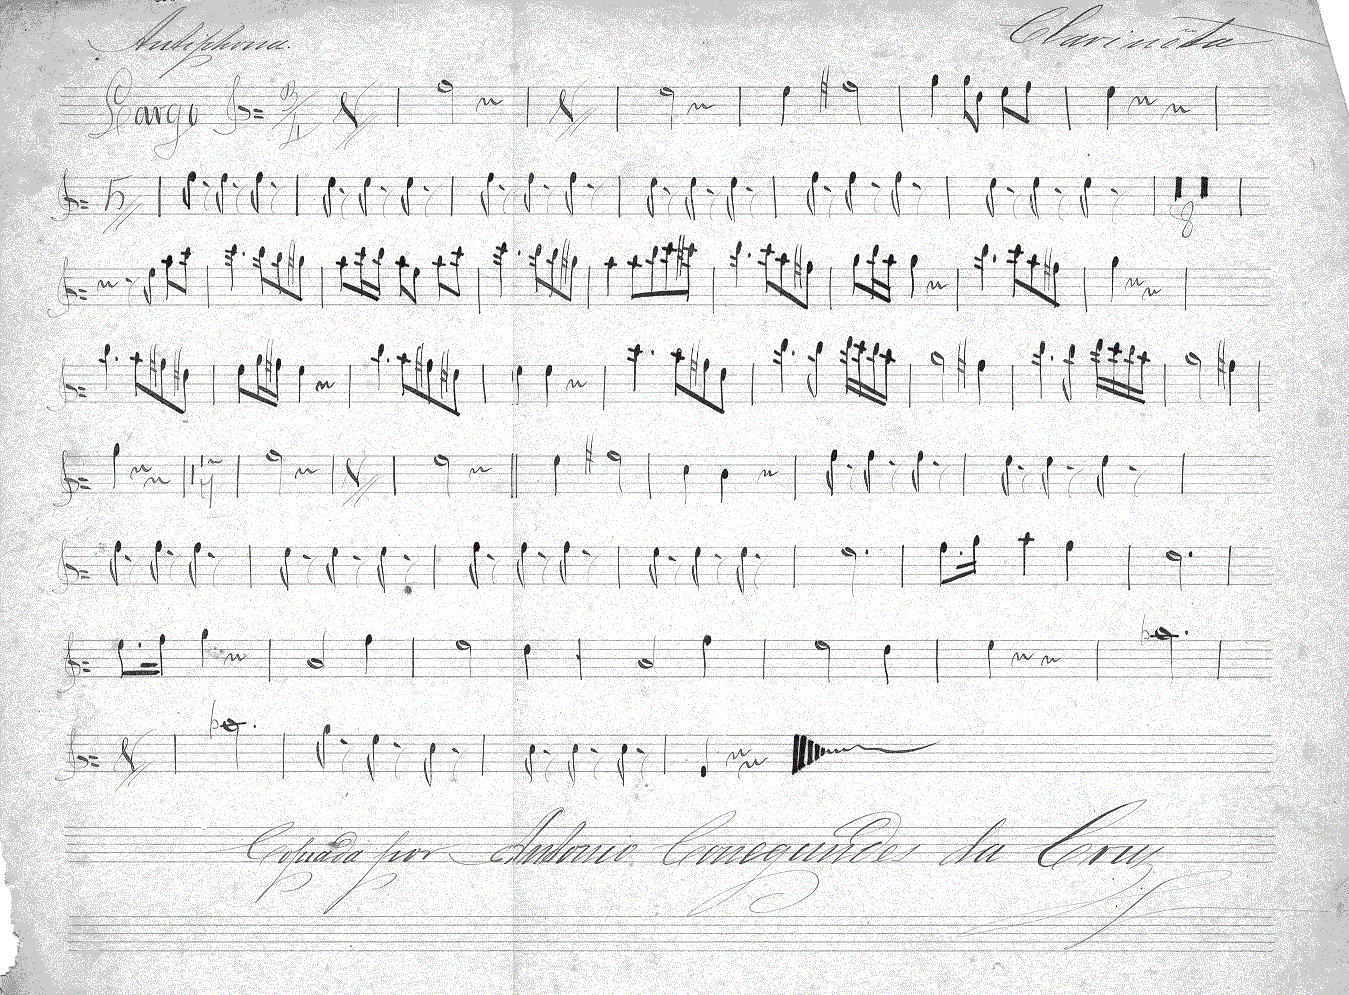 Antiphona. Clarinêta
Largo 3/4
5
8
Copiada por Antonio Conegundes da Cruz